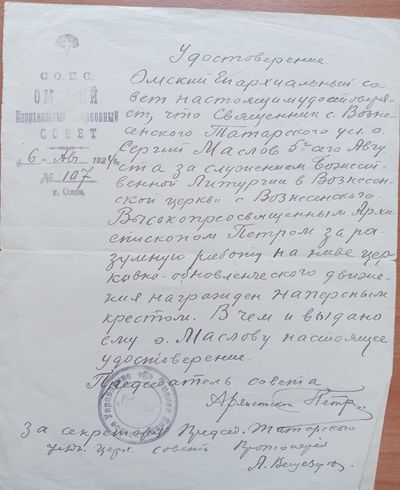 Удостоверение.
С.О.Ц.С.
ОМСКИЙ
Епархиальный Церковный
СОВЕТ
6 Авг 192
№ 107
г. Омск.
Омский Епархиальный со
вет настоящим удостоверя
ет, что Священник с. Возне
сенского Татарского уез. о.
Сергий Маслов 5го сего Авгу
ста за служением Божест
венной Литургии в Вознесен
ской церкви с. Вознесенского
Высокопреосвященным Архи
епископом Петром за ра
зумную работу на ниве цер
ковно-обновленческого движе
ния награжден наперсным
крестом. В чем и выдано
ему о. Маслову настоящее
удостоверение.
Председатель совета
Архиепископ Петр
За секретаря Председ. Татарского
церк совета Протоиерей